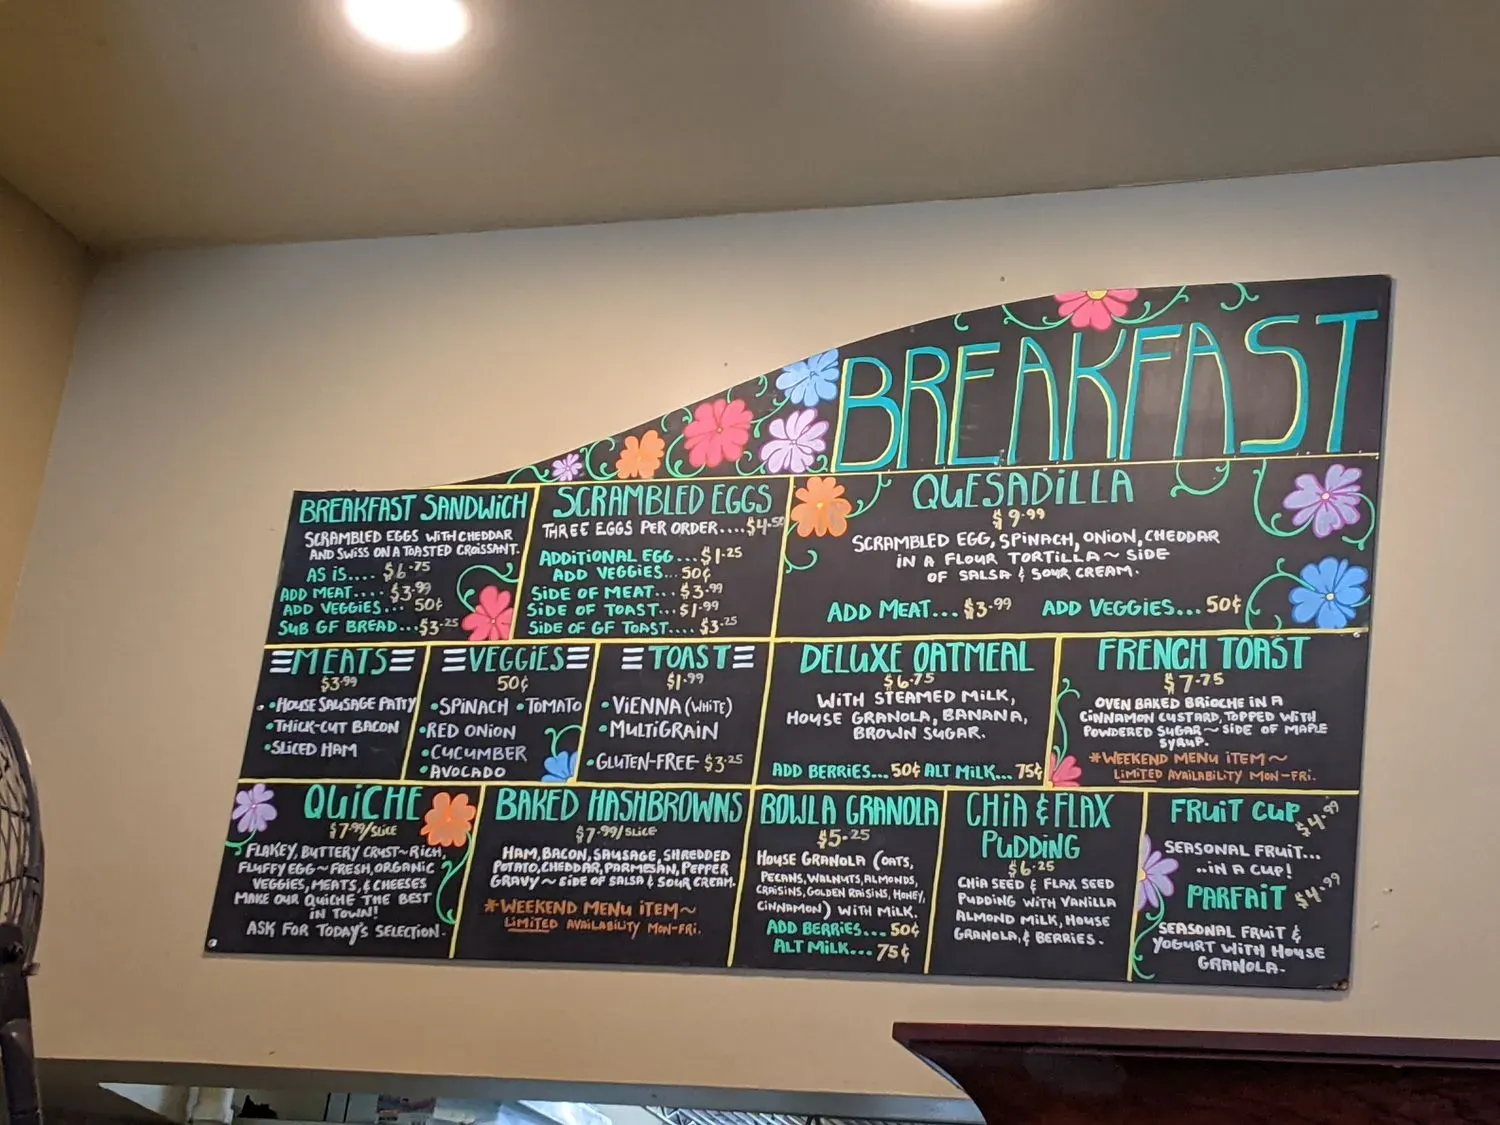 BREAKFAST
BREAKFAST SANDWICH
SCRAMBLED EGGS WITH CHEDDAR
AND SWISS ON A TOASTED CROISSANT.
AS IS.... $6.75
ADD MEAT.... $3.99
ADD VEGGIES... 50¢
SUB GF BREAD...$3.25
SCRAMBLED EGGS
THREE EGGS PER ORDER....$4.50
ADDITIONAL EGG...$1.25
ADD VEGGIES...50¢
SIDE OF MEAT...$3.99
SIDE OF TOAST...$1.99
SIDE OF GF TOAST....$3.25
QUESADILLA
$9.99
SCRAMBLED EGG, SPINACH, ONION, CHEDDAR
IN A FLOUR TORTILLA~ SIDE
OF SALSA & SOUR CREAM.
ADD MEAT...$3.99 ADD VEGGIES...50¢
MEATS
$3.99
• HOUSE SAUSAGE PATTY
• THICK-CUT BACON
• SLICED HAM
VEGGIES
50¢
• SPINACH • TOMATO
• RED ONION
• CUCUMBER
• AVOCADO
TOAST
$1.99
• VIENNA (WHITE)
• MULTIGRAIN
• GLUTEN-FREE $3.25
DELUXE OATMEAL
$6.75
WITH STEAMED MILK,
HOUSE GRANOLA, BANANA,
BROWN SUGAR.
ADD BERRIES...50¢ ALT MILK...75¢
FRENCH TOAST
$7.75
OVEN BAKED BRIOCHE IN A
CINNAMON CUSTARD, TOPPED WITH
POWDERED SUGAR~ SIDE OF MAPLE
SYRUP.
*WEEKEND MENU ITEM~
LIMITED AVAILABILITY MON-FRI.
QUICHE
$7.99/SLICE
FLAKEY, BUTTERY CRUST~RICH,
FLUFFY EGG~ FRESH, ORGANIC
VEGGIES, MEATS, & CHEESES
MAKE OUR QUICHE THE BEST
IN TOWN!
ASK FOR TODAY'S SELECTION.
BAKED HASHBROWNS
$7.99/SLICE
HAM, BACON, SAUSAGE, SHREDDED
POTATO, CHEDDAR, PARMESAN, PEPPER
GRAVY~ SIDE OF SALSA & SOUR CREAM.
*WEEKEND MENU ITEM~
LIMITED AVAILABILITY MON-FRI.
BOWLA GRANOLA
$5.25
HOUSE GRANOLA (OATS,
PECANS, WALNUTS, ALMONDS,
CRAISINS, GOLDEN RAISINS, HONEY,
CINNAMON) WITH MILK.
ADD BERRIES...50¢
ALT MILK...75¢
CHIA & FLAX
PUDDING
$6.25
CHIA SEED & FLAX SEED
PUDDING WITH VANILLA
ALMOND MILK, HOUSE
GRANOLA, & BERRIES.
FRUIT CUP $4.99
SEASONAL FRUIT...
..IN A CUP!
PARFAIT $4.99
SEASONAL FRUIT &
YOGURT WITH HOUSE
GRANOLA.